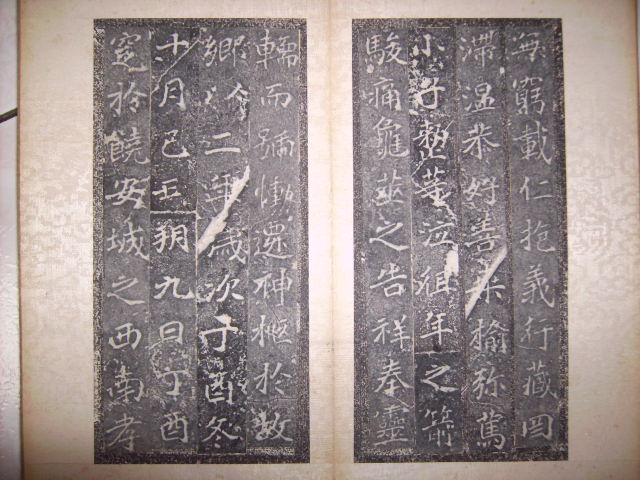 無窮載仁抱義行藏罔
滯温恭好善桑榆弥篤
小子整等泣徂年之箭
駿痛龜筮之告祥奉靈
轜而號慟遷神柩於故
鄉以今二年歲次丁酉冬
十月己丑朔九日丁酉
窆於饒安城之西南孝